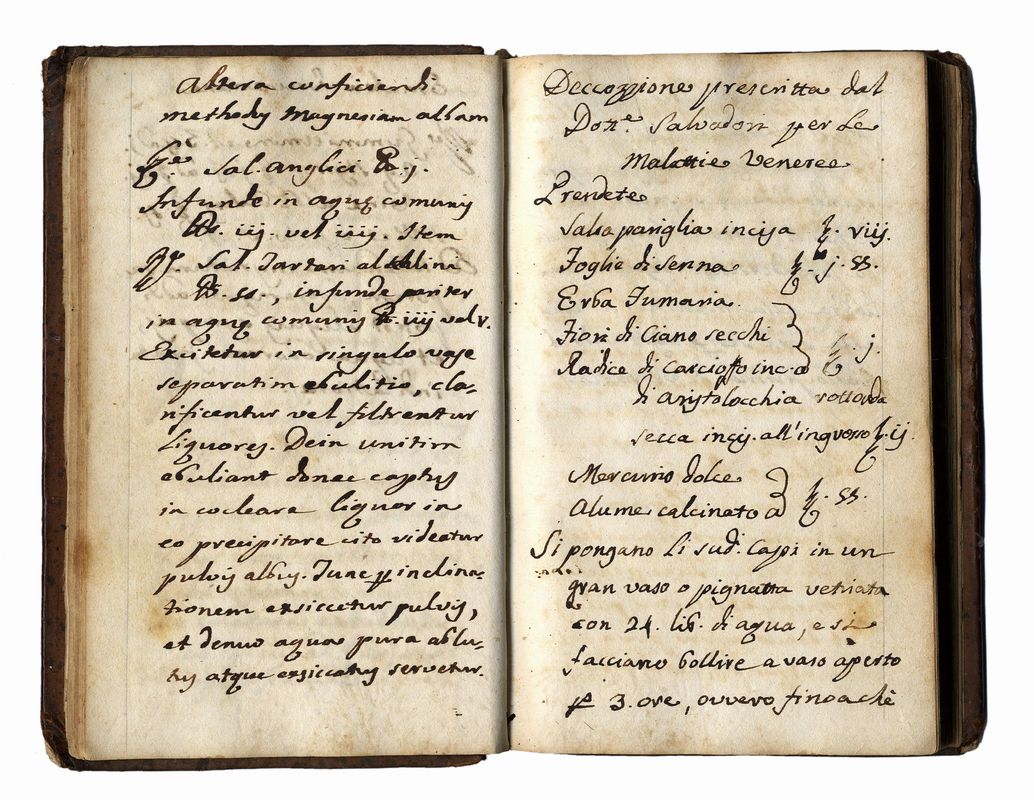 Altera conficiendi
methodus Magnesiam albam
℞e. Sal. Anglici ℔. j.
Infunde in aquę comunis
℔. iij. vel iiij. Item
℞. Sal. Tartari alchlini
℔. ss., infunde pariter
in aquę comunis ℔. iiij vel v.
Excitetur in singulo vase
separatim ebulitio, cla-
rificentur vel filtrentur
Liquores. Dein unitim
ebuliant donec captus
in cocleara liquor in
eo precipitare cito videatur
pulvis albus. Tunc ꝑ inclina-
tionem exsiccetur pulvis,
et denuo aqua pura ablu-
tus atque exsiccatus servetur.
Deccozzione prescritta dal
Dotte. Salvadori per le
Malattie Veneree
Prendete
Salsa pariglia incisa ℥. viij.
Foglie di senna ℥. j. ss.
Erba Fumaria.
Fiori di Ciano secchi
Radice di carcioffo inc. a ℥ j.
di aristolocchia rottonda
secca incis. all'ingrosso ℥. ij.
Mercurio dolce
Alume calcinato a ℥. ss.
Si pongano li sud. Capi in un
gran vaso o pignatta vetriata
con 24. lib. di aqua, e si
facciano bollire a vaso aperto
ꝑ 3. ore, ovvero fino a chè